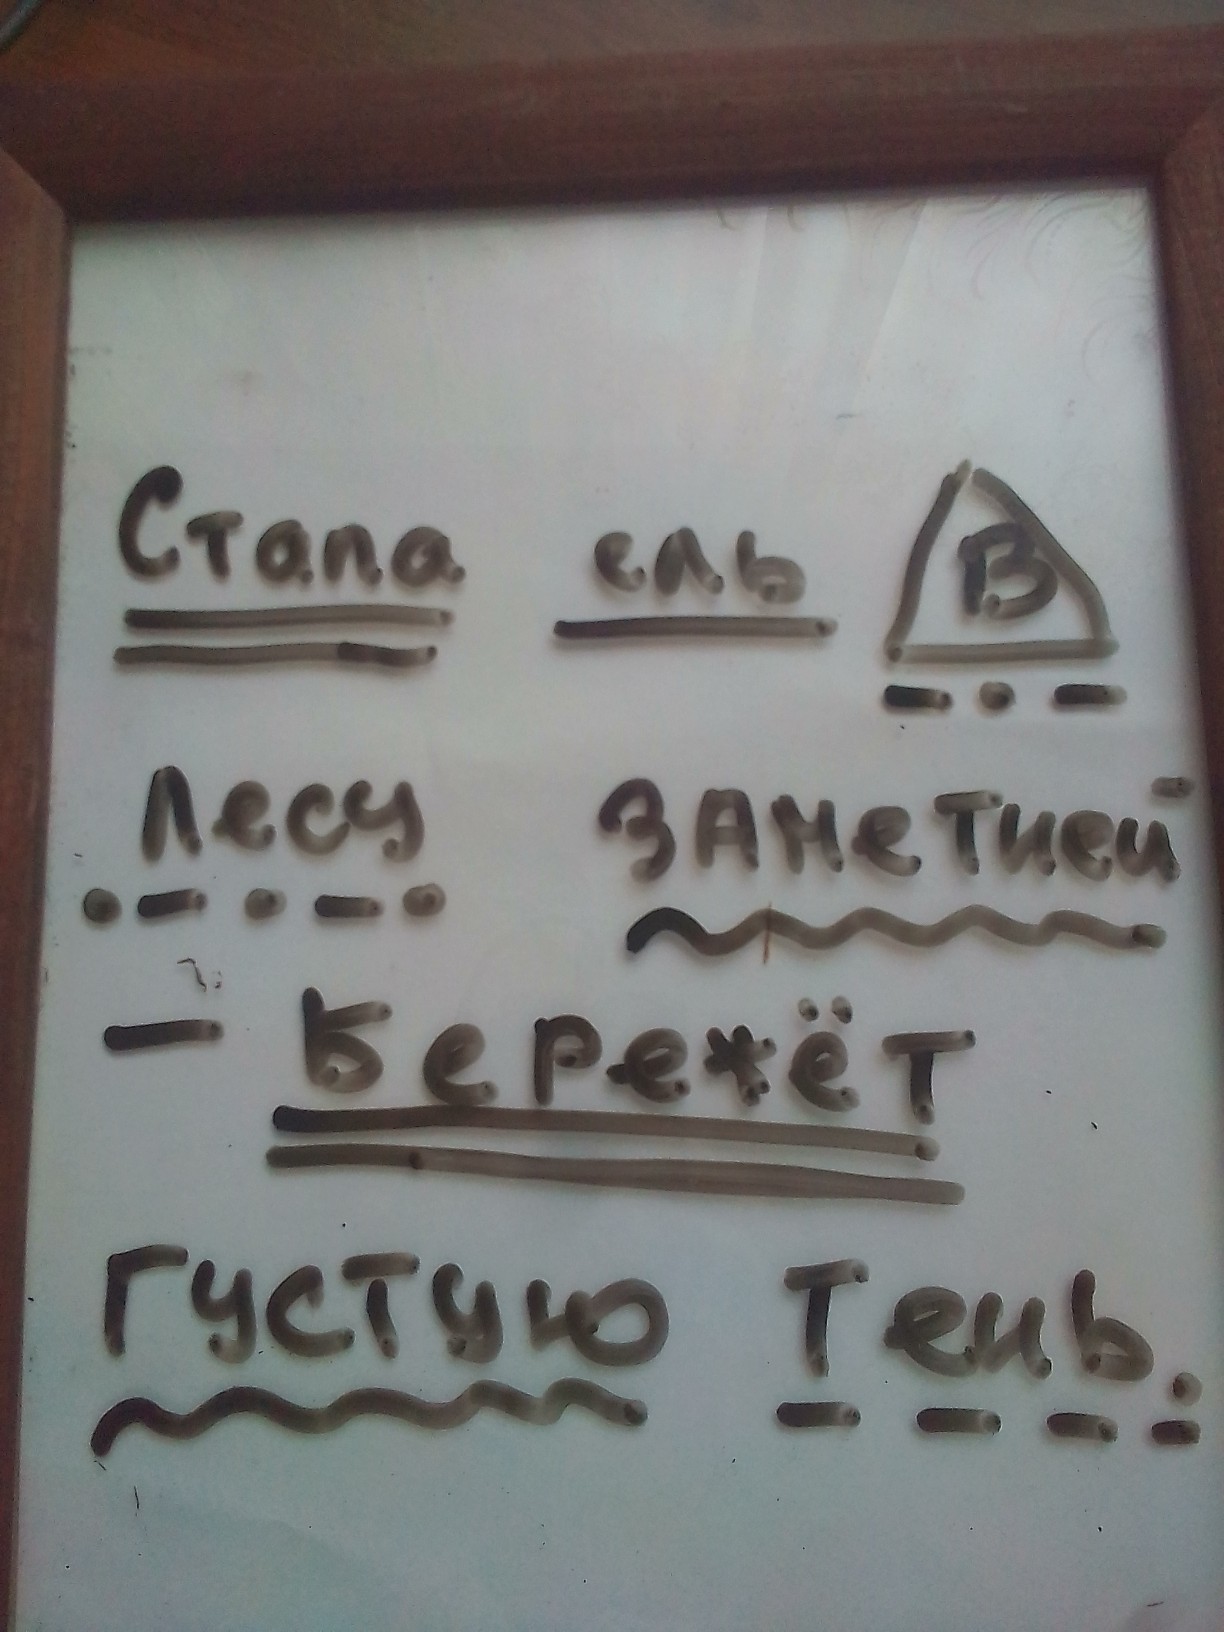 Стала ель В
Лесу заметней
– Бережёт
густую Тень.